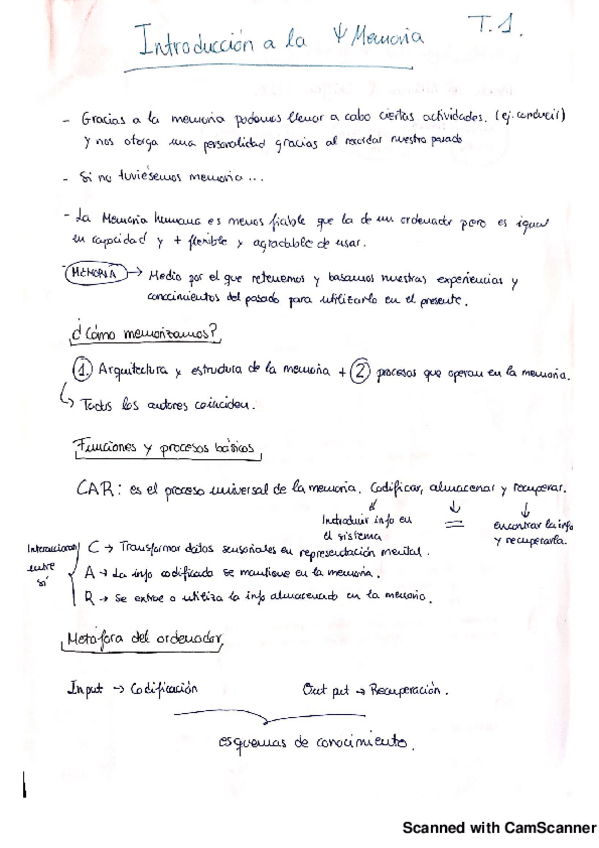 Introducción a la Ψ Memoria T.1.
- Gracias a la memoria podemos llevar a cabo ciertas actividades. (ej. conducir)
y nos otorga una personalidad gracias al recordar nuestro pasado
- Si no tuviésemos memoria...
- La Memoria humana es menos fiable que la de un ordenador pero es igual
en capacidad y + flexible y agradable de usar.
MEMORIA → Medio por el que retenemos y basamos nuestras experiencias y
conocimientos del pasado para utilizarlo en el presente.
¿Cómo memorizamos?
1. Arquitectura y estructura de la memoria + 2 procesos que operan en la memoria.
↳ Todos los autores coinciden.
Funciones y procesos básicos
CAR: es el proceso universal de la memoria. Codificar, almacenar y recuperar.
↓ ↓ ↓
Introducir info en = encontrar la info
el sistema y recuperarla.
Interaccionan C → Transformar datos sensoriales en representación mental.
entre A → La info codificada se mantiene en la memoria.
sí R → Se extrae o utiliza la info almacenada en la memoria.
Metáfora del ordenador
Input → Codificación Out put → Recuperación.
esquemas de conocimiento.
Scanned with CamScanner